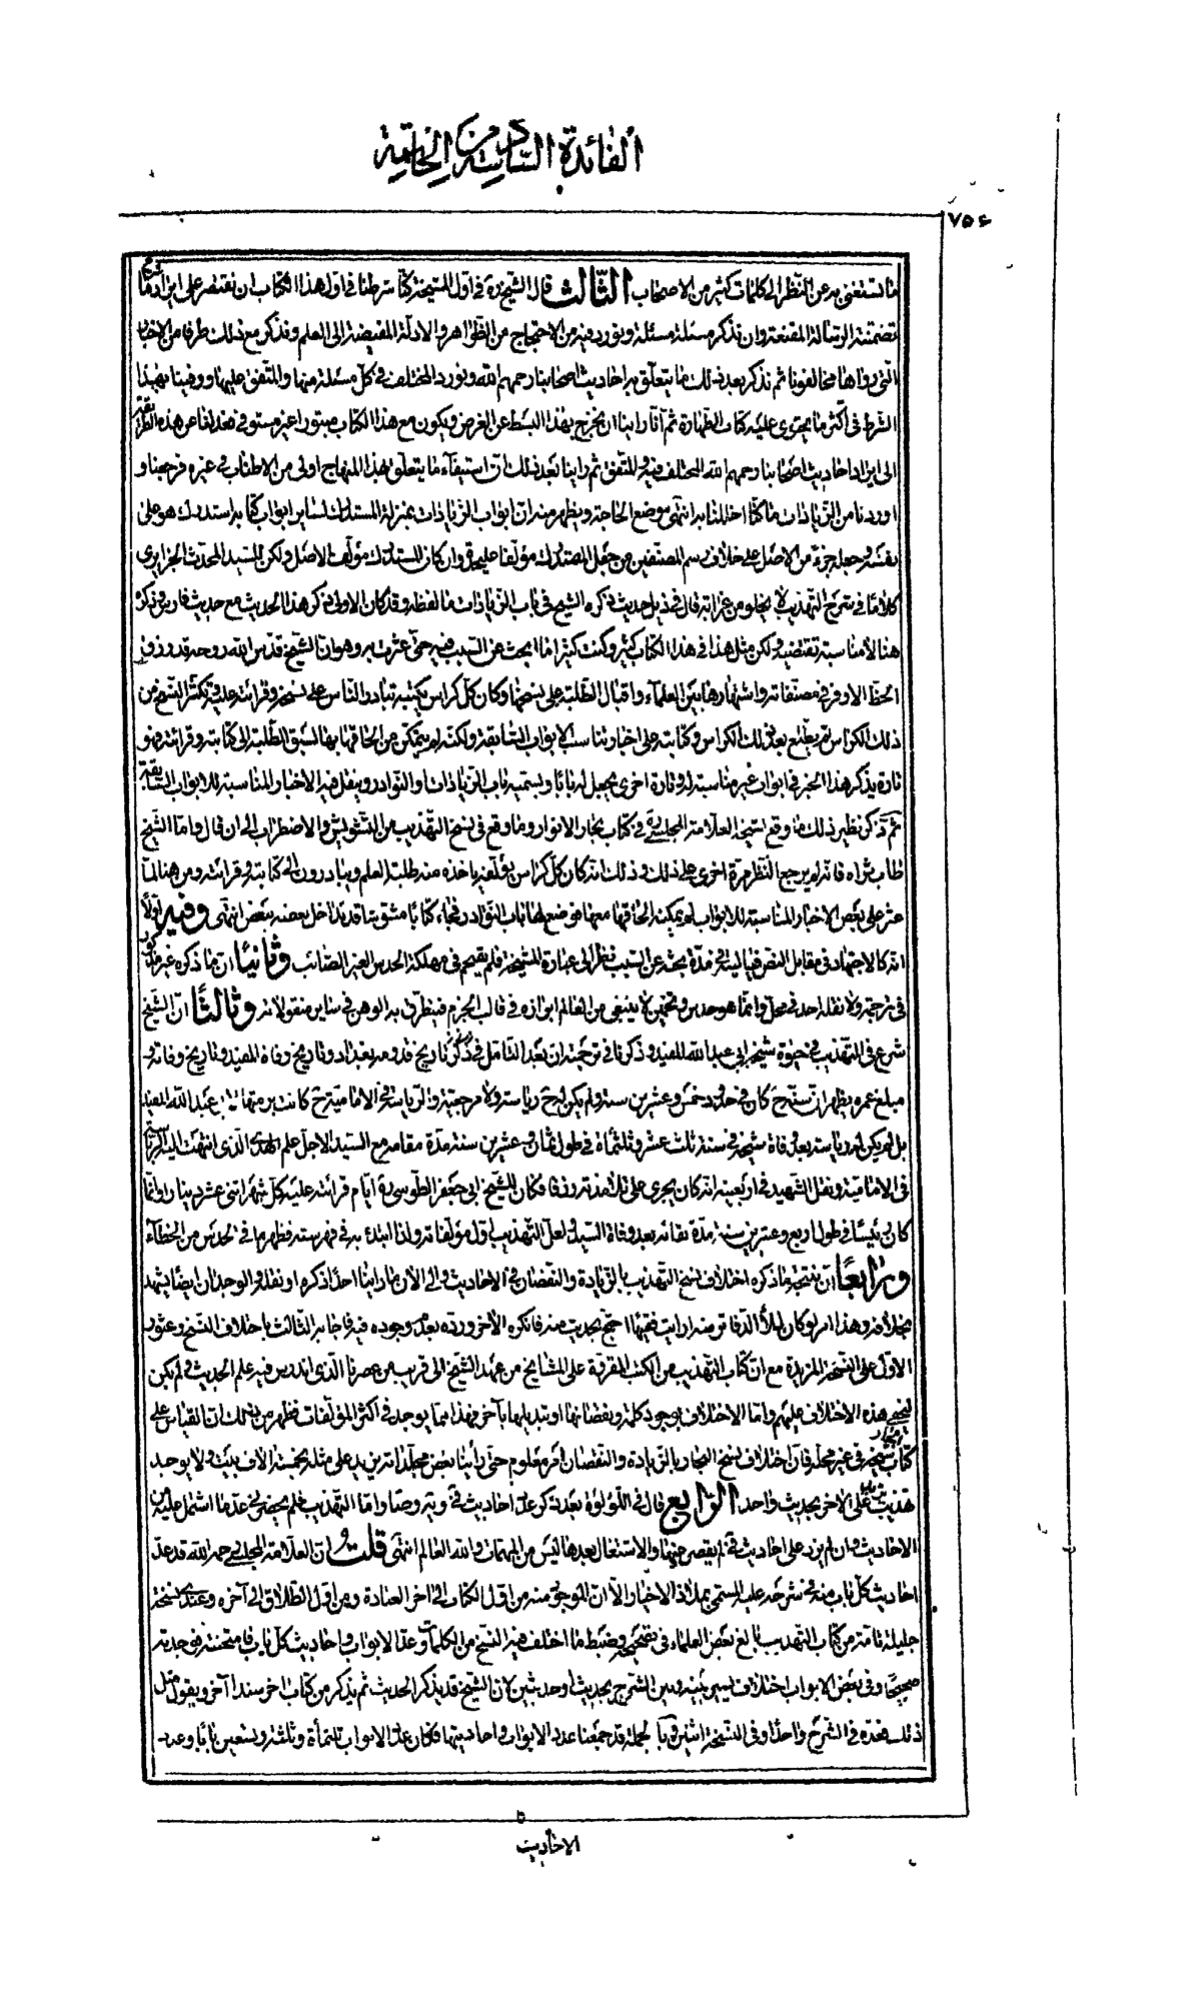 الفائدة السادسة من الخاتمة
٧٥۶
ما يستغنى به عن النظر الى كلمات كثير من الاصحاب الثالث قال الشيخ ره فى اول المشيخة كنا شرطنا فى اول هذا الكتاب ان نقتصر على ايراد ما شرح
تضمنته الرسالة المقنعة وان نذكر مسئلة مسئلة ونورد فيه من الاحتجاج من الظواهر والادلة المفيضة الى العلم ونذكر مع ذلك طرفا من الاخبار
التى رواها مخالفونا ثم نذكر بعد ذلك ما يتعلق باحاديث اصحابنا رحمهم الله ونورد المختلف فى كل مسئلة منها والمتفق عليها ووفينا بهذا
الشرط فى اكثر ما يحتوى عليه كتاب الطهارة ثم انا راينا ان نخرج بهذا البسط عن الغرض ويكون مع هذا الكتاب مبتورا غير مستوفى فعدلنا عن هذه الطريقة
الى ايراد احاديث اصحابنا رحمهم الله المختلف فيه والمتفق ثم راينا بعد ذلك ان استيفاء ما يتعلق بهذا المنهاج اولى من الاطناب فى غيره فرجعنا و
اوردنا من الزيادات ما كنا اخللنا به انتهى موضع الحاجة ويظهر منه ان ابواب الزيادات بمنزلة المستدرك لساير ابواب كتابه استدرك هو على
نفسه وجعله جزء من الاصل على خلاف رسم المصنفين من جعل المستدرك مؤلفا عليحدة وان كان المستدرك مؤلف الاصل ولكن للسيد المحدث الجزايرى
كلاما فى شرح التهذيب لا يخلو من غرابة قال فى ذيل حديث ذكره الشيخ فى باب الزيادات ما لفظه وقد كان الاولى ذكر هذا الحديث مع حديث فارس وذكره
هنا لا مناسبة تقتضيه ولكن مثل هذا فى هذا الكتاب كثير وكنت كثيرا ما ابحث عن السبب فيه حتى عثرت به وهو ان الشيخ قدس الله روحه قد رزق
الحظ الاوفر فى مصنفاته واشتهارها بين العلماء واقبال الطلبة على نسخها وكان كل كراس يكتبه تبادر الناس على نسخه وقرائته عليه وتكثر النسخ من
ذلك الكراس ثم يطلع بعد ذلك الكراس وكتابته على اخبار تناسب الابواب السابقة ولكنه لم يتمكن من الحاقها بها لسبق الطلبة الى كتابته وقرائته فهو
تارة يذكر هذا الخبر فى ابواب غير مناسبة له وتارة اخرى يجعل له بابا ويسميه باب الزيادات او النوادر وينقل فيه الاخبار المناسبة للابواب السابقة
ثم ذكر نظير ذلك ما وقع لشيخه العلامة المجلسى ره فى كتاب بحار الانوار وما وقع فى نسخ التهذيب من التشويش والاضطراب الى ان قال واما الشيخ
طاب ثراه فانه لم يرجع النظر مرة اخرى على ذلك وذلك انه كان كل كراس يؤلفه ياخذه منه طلبة العلم ويبادرون الى كتابته وقرائته ومن هنا لما
عثر على بعض الاخبار المناسبة للابواب لم يمكنه الحاقها معها فوضع لها باب النوادر فجاء كتابا مشوشا قد تداخل بعضه ببعض انتهى وفيه اولا
انه كالاجتهاد فى مقابل النص فياليته فى مدة بحثه عن السبب نظر الى عبارة المشيخة فلم يقتحم فى مهلكة الحدس الغير الصائب وثانيا ان ما ذكره غير مذكور
فى ترجمته ولا نقله احد فى محل وانما هو حدس وتخمين لا ينبغى من العالم ابرازه فى قالب الجزم فيتطرق به الوهن فى ساير منقولاته وثالثا ان الشيخ
شرع فى التهذيب فى حيوة شيخه ابى عبد الله المفيد وذكرنا فى ترجمته ان بعد التامل فى ذكر تاريخ قدومه بغداد وتاريخ وفاة المفيد وتاريخ وفاته و
مبلغ عمره يظهر ان سنه ح كان فى حدود خمس وعشرين سنة ولم يكن له ح رياسة ولا مرجعية والرياسة فى الامامية ح كانت برمتها لابى عبد الله المفيد
بل لم يكن له رياسة بعد وفاة شيخه فى سنة ثلث عشر وثلثمأة فى طول ثمان وعشرين سنة مدة مقامه مع السيد الاجل علم الهدى الذى انتهت اليه الرياسة
فى الامامية ونقل الشهيد فى اربعينه انه كان يجرى على تلامذته رزقا فكان للشيخ ابى جعفر الطوسى ره ايام قرائته عليه كل شهر اثنى عشر دينارا وانما
كان رئيسا فى طول اربع وعشرين سنة مدة بقائه بعد وفاة السيد ولعل التهذيب اول مؤلفاته ولذا ابتدء به فى فهرسته فظهر ما فى الحدس من الخطاء
ورابعا ان نتيجة ما ذكره اختلاف نسخ التهذيب بالزيادة والنقصان فى الاحاديث والى الان ما راينا احدا ذكره او نقله والوجدان ايضا يشهد
بخلافه وهذا امر لو كان لملأ الدفاتر منه ارايت فقيها احتج بحديث منه فانكره الآخر ورده بعدم وجوده فيه فاجابه الثالث باختلاف النسخ وعثور
الاول على النسخة المزيدة مع ان كتاب التهذيب من الكتب المقروة على المشايخ من عهد الشيخ الى قريب من عصرنا الذى اندرس فيه علم الحديث ولم يكن
ليخفى هذه الاختلاف عليهم واما الاختلاف بوجود كلمة ونقصانها او تبديلها بآخر فهذا مما يوجد فى اكثر المؤلفات فظهر من ذلك ان القياس على
كتاب شيخه البحار فى غير محله فان اختلاف نسخ البحار بالزيادة والنقصان امر معلوم حتى راينا بعض مجلداته يزيد على مثله بخمسة الاف بيت ولا يوجد
تهذيب يزيد على الآخر بحديث واحد الرابع قال فى اللؤلؤة بعد ذكر عدد احاديث فى ويه وصا واما التهذيب فلم يحضرنى عدد ما اشتمل عليه من
الاحاديث فان لم يزد على احاديث فى لم يقصر عنها والاشتغال بعدها ليس من المهمات والله العالم انتهى قلت ان العلامة المجلسى رحمه الله قد عد
احاديث كل باب منه فى شرحه عليه المسمى بملاذ الاخيار الا ان الموجود منه من اول الكتاب الى آخر العبادة ومن اول الطلاق الى آخره وعندى نسخة
جليلة تامة من كتاب التهذيب بالغ بعض العلماء فى تصحيحه وضبط ما اختلف فيه النسخ من الكلمات وعد الابواب واحاديث كل باب فامتحنته فوجدته
صحيحا وفى بعض الابواب اختلاف يسير بينه وبين الشرح بحديث او حديثين لان الشيخ قد يذكر الحديث ثم يذكر من كتاب آخر سندا آخر ويقول مثل
ذلك فعده فى الشرح واحدا وفى النسخة اثنين وبالجملة قد جمعنا عدد الابواب واحاديثها فكان عدد الابواب ثلثمأة وثلثة وتسعين بابا وعدد
الاحاديث